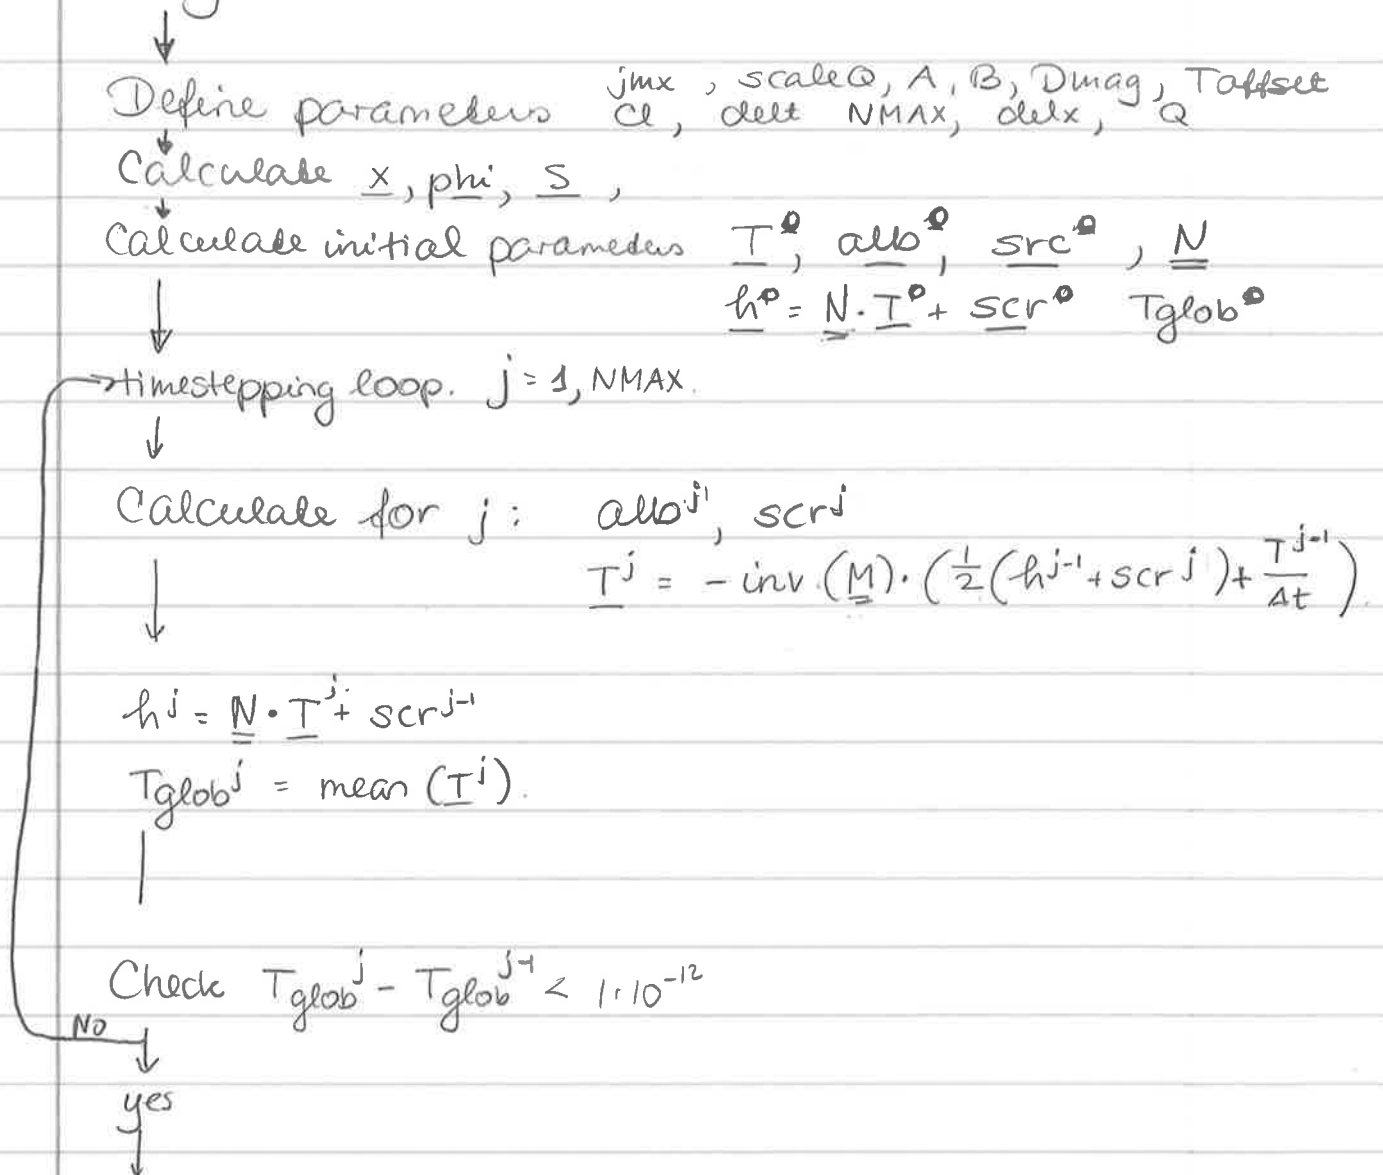 Define parameters jmx, scaleQ, A, B, Dmag, Toffset
Cl, delt NMAX, delx, Q
Calculate x, phi, S,
Calculate initial parameters T⁰, alb⁰, src⁰, N
h⁰ = N · T⁰ + scr⁰ Tglob⁰
timestepping loop. j = 1, NMAX.
Calculate for j: alb^j, scr^j
T^j = - inv.(M)·(1/2(h^j-1 + scr^j) + T^j-1/Δt).
h^j = N · T^j + scr^j-1
Tglob^j = mean (T^j).
Check Tglob^j - Tglob^j-1 < 1·10^-12
NO
yes